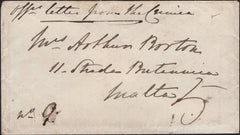 Offrs letter from the Crimea
Mrs Arthur Borton
11 Strada Britannica
Malta
No 9